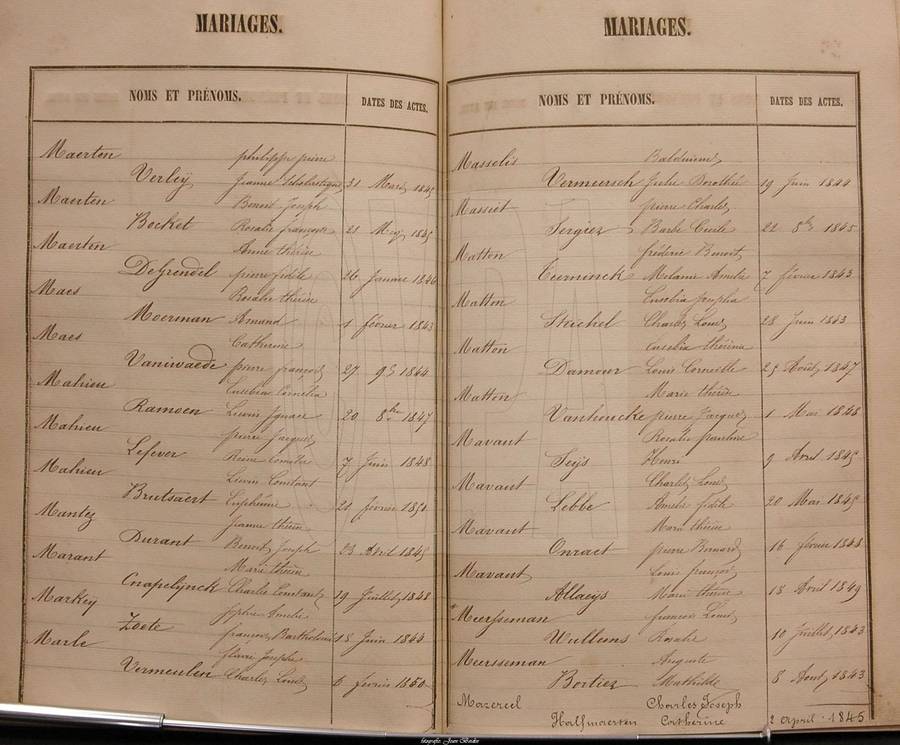 MARIAGES.
NOMS ET PRÉNOMS. DATES DES ACTES.
Maerten philippe pierre
Verley Jeanne Scholastique 31 Mars 1845
Maerten Benoit Joseph
Bocket Rosalie françoise 21 Mey 1845
Maerten Anne thérèse
DeGrendel pierre fidèle 26 Janvier 1846
Maes Rosalie thérèse
Moerman Amand 1 février 1843
Maes Catherine
Vaniwaede pierre françois 27 9bre 1844
Mahieu Eusebie Cornelia
Ramoen Livin Ignace 20 8bre 1847
Mahieu pierre Jacques
Lefever Reine 7 Juin 1848
Mahieu Livin Constant
Brutsaert Euphémie 21 février 1850
Mantez Jeanne thérèse
Durant Benoit Joseph 23 Avril 1845
Marant Marie thérèse
Cnapelynck Charles Constant 19 Juillet 1848
Markey Sophie Amelie
Zoete françois Bartholomé 15 Juin 1844
Marle flavie Josephe
Vermeulen Charles Louis 6 fevrier 1850
MARIAGES.
NOMS ET PRÉNOMS. DATES DES ACTES.
Masselis Balduinus
Vermeersch Julie Dorothée 19 Juin 1844
Massiet pierre Charles
Sergiez Barbe Cecile 22 8bre 1845
Matton fréderic Benoit
Cuerninck Melanie Amelie 7 février 1843
Matton Eusebia
Steichel Charles Louis 28 Juin 1843
Matton thérèse
Damour Louis Corneille 25 Août 1847
Matton Marie thérèse
Vanhoucke pierre Jacques 1 Mai 1848
Mavaut Rosalie pauline
Feys Henri 9 Avril 1845
Mavaut Charles Louis
Lebbe Amelie fidèle 20 Mai 1845
Mavaut Marie thérèse
Onraet pierre Bernard 16 février 1848
Mavaut Louis françois
Allaeys Marie thérèse 18 Avril 1849
Meersseman francois Louis
Wullems Rosalie 10 Juillet 1843
Meersseman Auguste
Bortiez Mathilde 8 Aout 1843
Mazereel Charles Joseph
Halfmaerten Catherine 2 April 1845